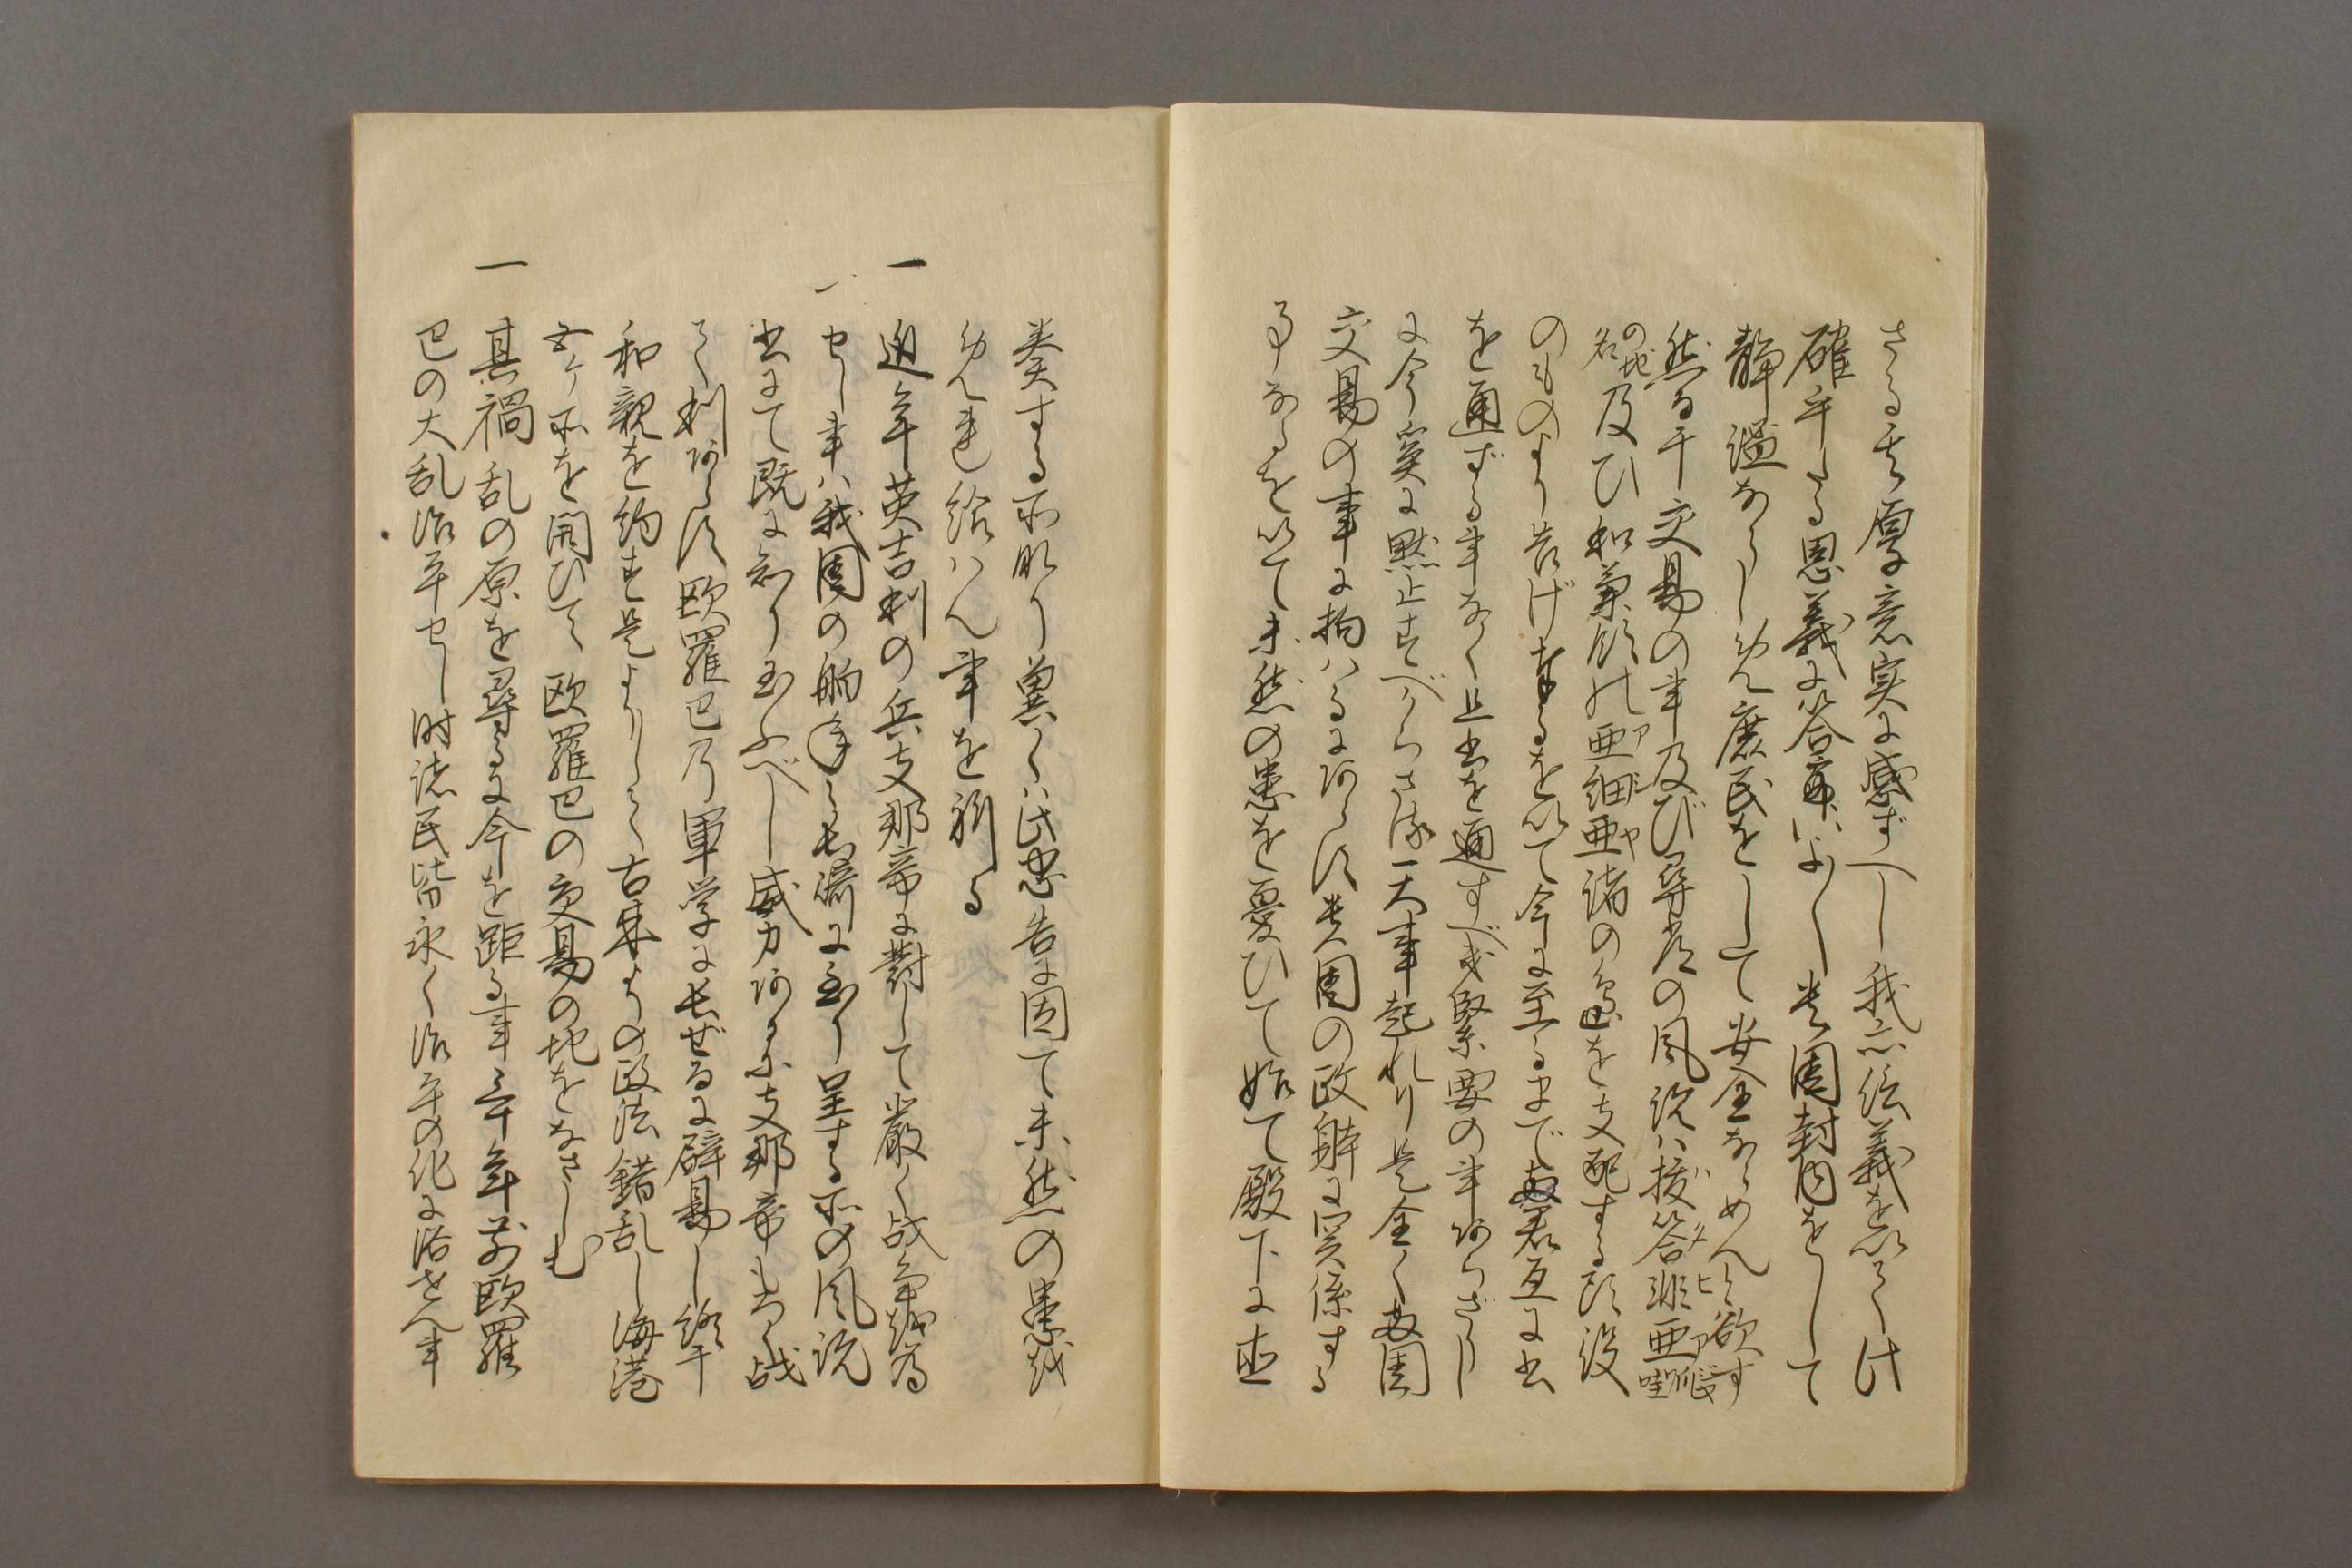 さる其厚意実に感ずへし我亦信義を以て此
確乎たる恩義に答庸いよ〳〵貴国封内をして
静謐ならしめ庶民をして安全ならめんと欲す
然る于交易の事及び尋常の風説ハ拔答非亜咬𠺕吧
の地名及ひ和蘭領の亜細亜諸の島を支配する頭役
のものより告げ奉るを以て今に至るまで両君互に書
を通ずる事なく且書を通すべき緊要の事あらざりし
に今爰に黙止すべからさる一大事起れり是全く両国
交易の事に拘ハるにあらす貴国の政体に関係する
事なるを以て未然の患を憂ひて始て殿下に書
奏する所なり冀くハ此忠告に因て未然の患を
免れ給ハん事を祈る
一 近年英吉利の兵支那帝に對して厳く战争を為
せし事ハ我国の舶年々長崎に到り呈する所の風説
書にて既に知り玉ふべし威力ある支那帝も久く战
て利あらす欧羅巴乃軍学に長ぜるに辟易し終于
和親を約せり是よりして古来よりの政法錯乱し海港
五ケ所を開ひて欧羅巴の交易の地をなさしむ
一 其禍乱の原を尋るに今を距る事三十年前欧羅
巴の大乱治平せし時諸民皆永く治平の化に浴せん事